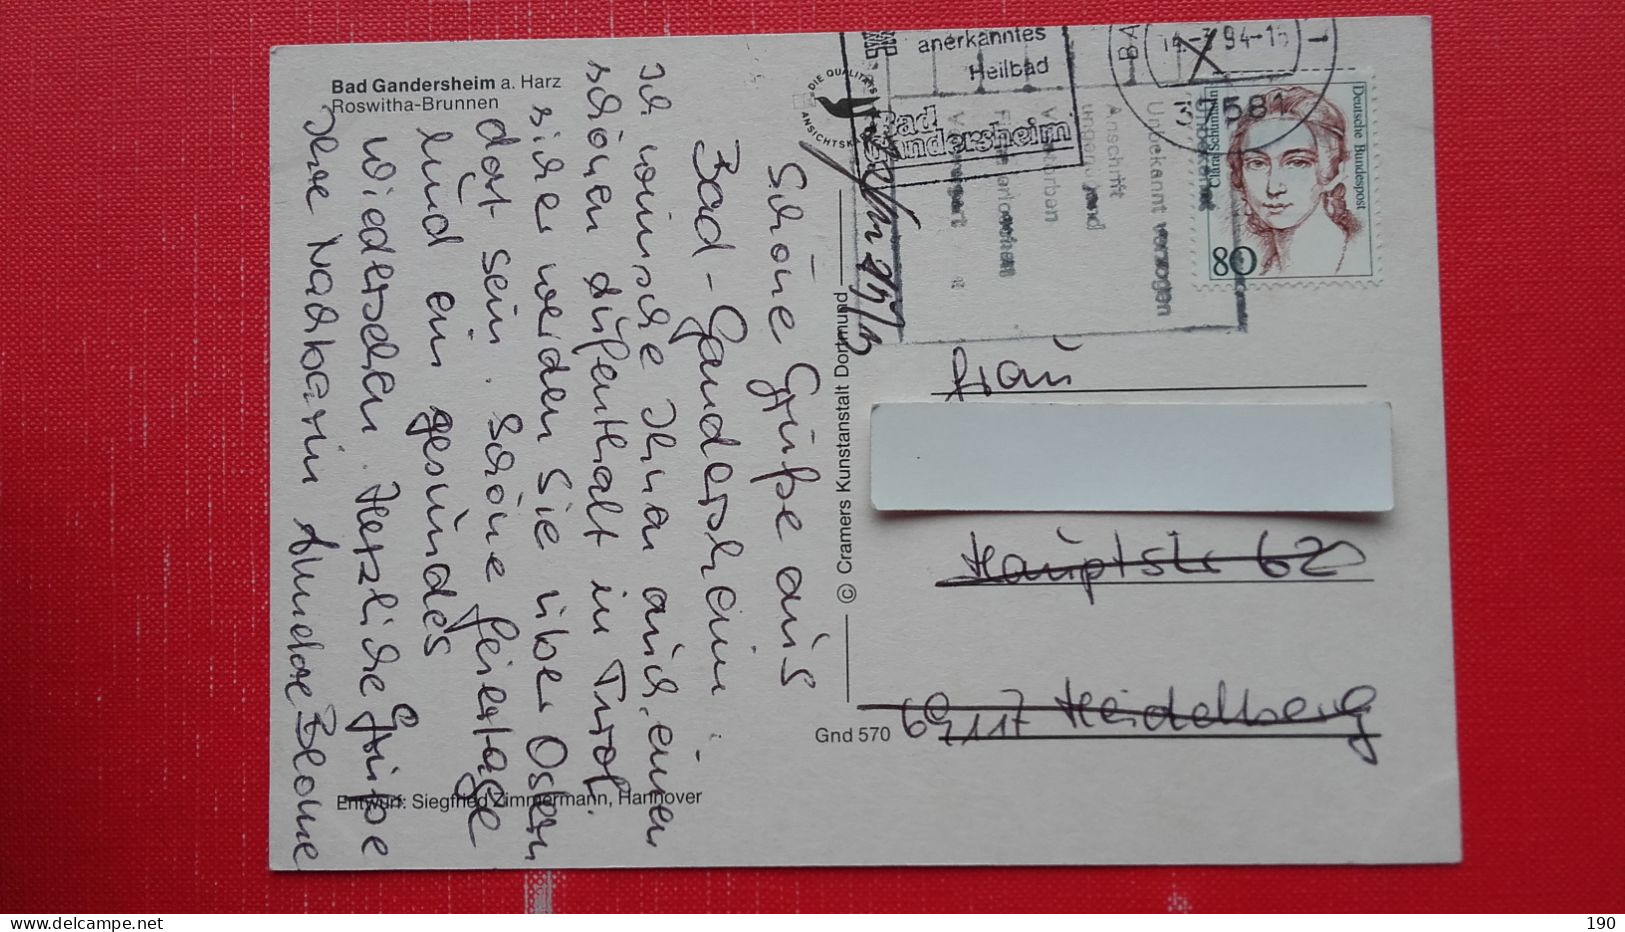 Bad Gandersheim a. Harz
Roswitha-Brunnen
Schöne Grüße aus
Bad-Gandersheim
Ich wünsche Ihnen auch einen
schönen Aufenthalt in Tirol.
sicher werden Sie über Ostern
dort sein. Schöne Feiertage
und ein gesundes
Wiedersehen. Herzliche Grüße
Ihre Nachbarin
Entwurf: Siegfried Zimmermann, Hannover
© Cramers Kunstanstalt Dortmund
Gnd 570
DIE QUALITÄTS
anerkanntes
Heilbad
Bad
Gandersheim
94-15
37581
Deutsche Bundespost
Clara Schumann
80
Unbekannt verzogen
Anschrift
Verstorben
Frau
Hauptstr 62
69117 Heidelberg
190